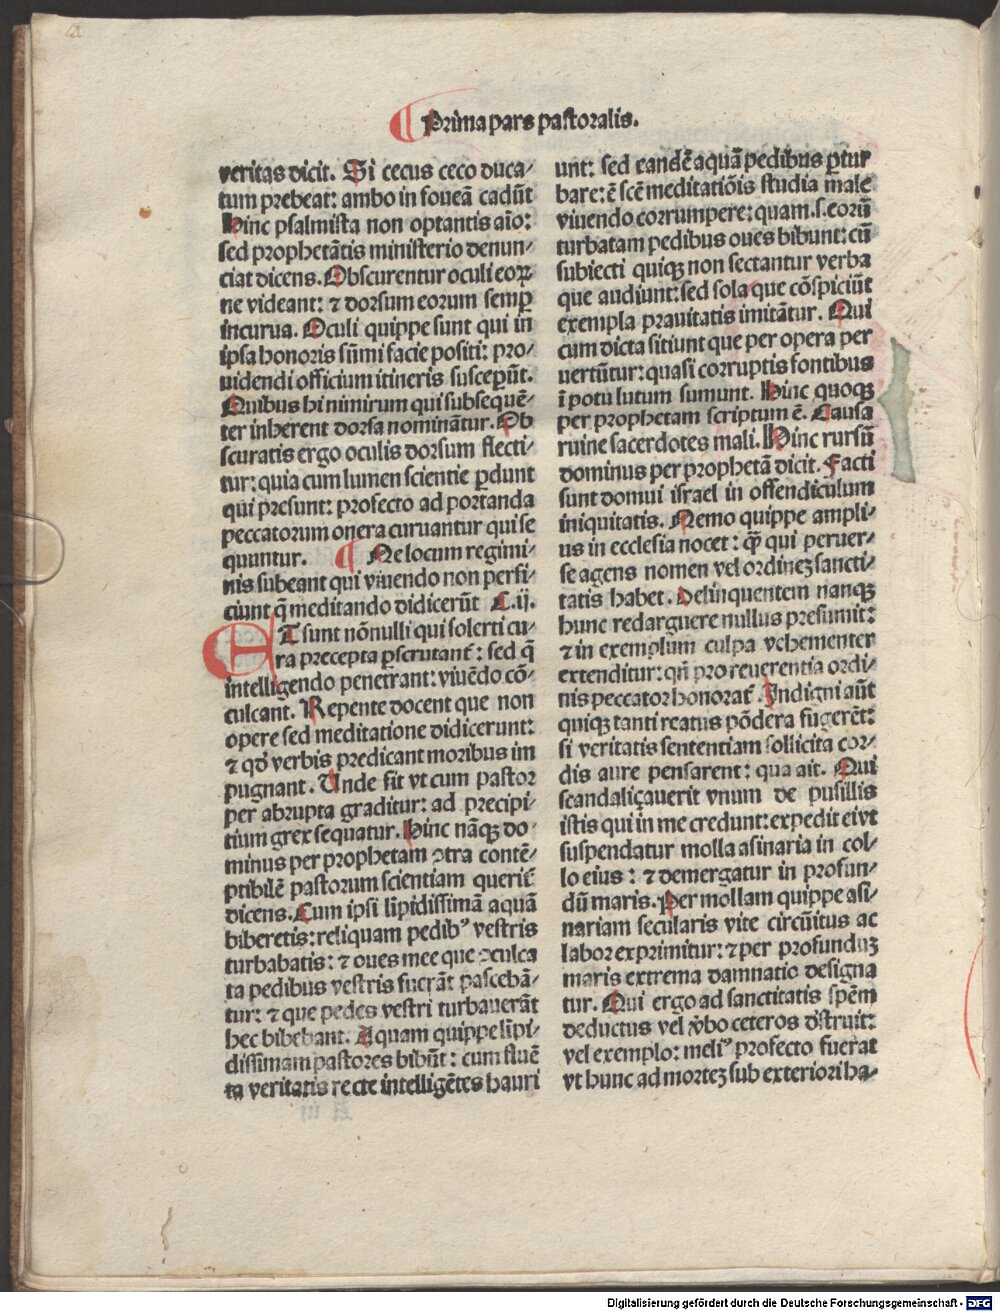 ¶ Prima pars pastoralis.
veritas dicit. Si cecus ceco duca⸗
tum prebeat: ambo in foueā cadūt
Hinc psalmista non optantis aīo:
sed prophetātis ministerio denun⸗
ciat dicens. Obscurentur oculi eoꝝ
ne videant: ⁊ dorsum eorum semꝑ
incurua. Oculi quippe sunt qui in
ipsa honoris sūmi facie positi: pro⸗
uidendi officium itineris susceperūt.
Quibus hi nimirum qui subsequē⸗
ter inherent dorsa nominātur. Ob
scuratis ergo oculis dorsum flecti⸗
tur: quia cum lumen scientie ꝑdunt
qui presunt: profecto ad portanda
peccatorum onera curuantur qui se
quuntur. ¶ Ne locum regimi⸗
nis subeant qui viuendo non perfi⸗
ciunt q̄ meditando didicerūt C.ij.
ET sunt nōnulli qui solerti cu⸗
ra precepta ꝑscrutant᷑: sed q̄
intelligendo penetrant: viuēdo cō⸗
culcant. Repente docent que non
opere sed meditatione didicerunt:
⁊ qđ verbis predicant moribus im
pugnant. Unde fit vt cum pastor
per abrupta graditur: ad precipi⸗
tium grex sequatur. Hinc nāqꝫ do⸗
minus per prophetam ↄtra contē⸗
ptibilē pastorum scientiam querit᷑
dicens. Cum ipsi līpidissimā aquā
biberetis: reliquam pedibꝰ vestris
turbabatis: ⁊ oues mee que ↄculca
ta pedibus vestris fuerāt pascebā⸗
tur: ⁊ que pedes vestri turbauerāt
hec bibebant. Aquam quippe līpi⸗
dissimam pastores bibūt: cum fluē
ta veritatis recte intelligētes hauri
unt: sed eandē aquā pedibus ꝑtur
bare: ē scē meditatiōis studia male
viuendo corrumpere: quam .s. eorū
turbatam pedibus oues bibunt: cū
subiecti quiqꝫ non sectantur verba
que audiunt: sed sola que cōspiciūt
exempla prauitatis imitātur. Qui
cum dicta sitiunt que per opera per
uertūtur: quasi corruptis fontibus
ī potu lutum sumunt. Hinc quoqꝫ
per prophetam scriptum ē. Causa
ruine sacerdotes mali. Hinc rursū
dominus per prophetā dicit. Facti
sunt domui israel in offendiculum
iniquitatis. Nemo quippe ampli⸗
us in ecclesia nocet: q̄ꝫ qui peruer⸗
se agens nomen vel ordinēꝫ sancti⸗
tatis habet. Delinquentem nanqꝫ
hunc redarguere nullus presumit:
⁊ in exemplum culpa vehementer
extenditur: qn̄ pro reuerentia ordi⸗
nis peccator honorat᷑. Indigni aūt
quiqꝫ tanti reatus pōdera fugerēt:
si veritatis sententiam sollicita cor⸗
dis aure pensarent: qua ait. Qui
scandaliçauerit vnum de pusillis
istis qui in me credunt: expedit ei vt
suspendatur molla asinaria in col⸗
lo eius: ⁊ demergatur in profun⸗
dū maris. Per mollam quippe asi⸗
nariam secularis vite circūitus ac
labor exprimitur: ⁊ per profunduꝫ
maris extrema damnatio designa
tur. Qui ergo ad sanctitatis spēm
deductus vel v̄bo ceteros d̄struit:
vel exemplo: meliꝰ profecto fuerat
vt hunc ad morteꝫ sub exteriori ha⸗
Digitalisierung gefördert durch die Deutsche Forschungsgemeinschaft - DFG